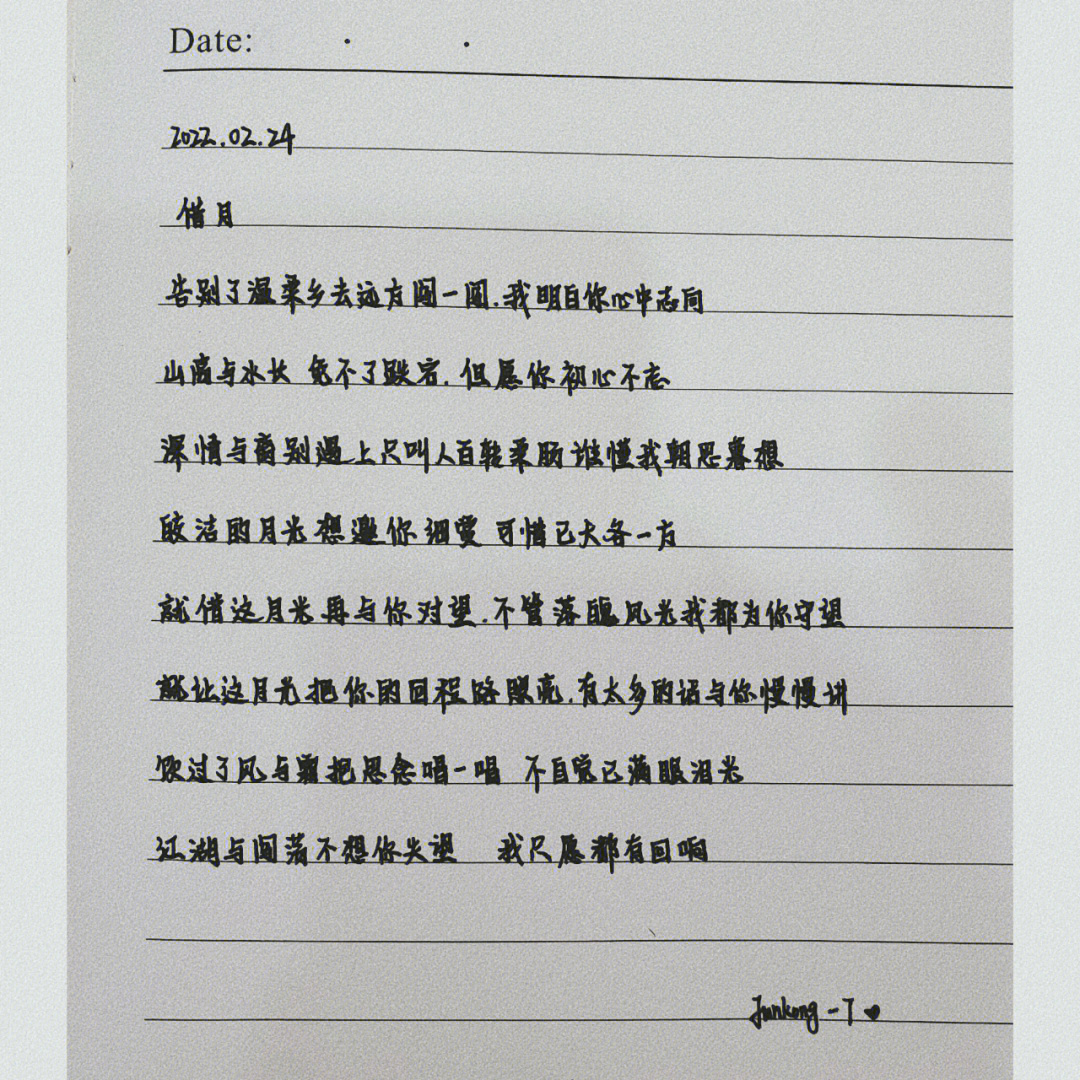 Date: · ·
2022.02.24
借月
告别了温柔乡去远方闯一闯.我明白你心中志向
山高与水长 免不了跌宕.但愿你初心不忘
深情与离别遇上只叫人百转柔肠谁懂我朝思暮想
皎洁的月光想邀你细赏 可惜已天各一方
就借这月光再与你对望.不管落魄风光我都为你守望
就让这月光把你的回程路照亮.有太多的话与你慢慢讲
饮过了风与霜把思念唱一唱 不自觉已满眼泪光
江湖与闯荡不想你失望 我只愿都有回响
Junkong-T♥